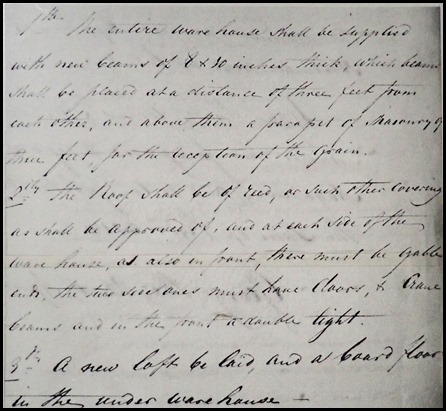 1th. The entire ware house shall be supplied
with new beams of 8 x 10 inches thick, which beams
shall be placed at a distance of three feet from
each other, and above them a parapet of Masonry of
three feet for the reception of the Grain.
2dly the Roof shall be of reed, or such other Covering
as shall be approved of, and at each side of the
ware house, as also in front, there must be gable
ends, the two side ones must have doors, & Crane
beams and in the front a double light.
3dly A new loft be laid, and a board floor
in the under ware house —